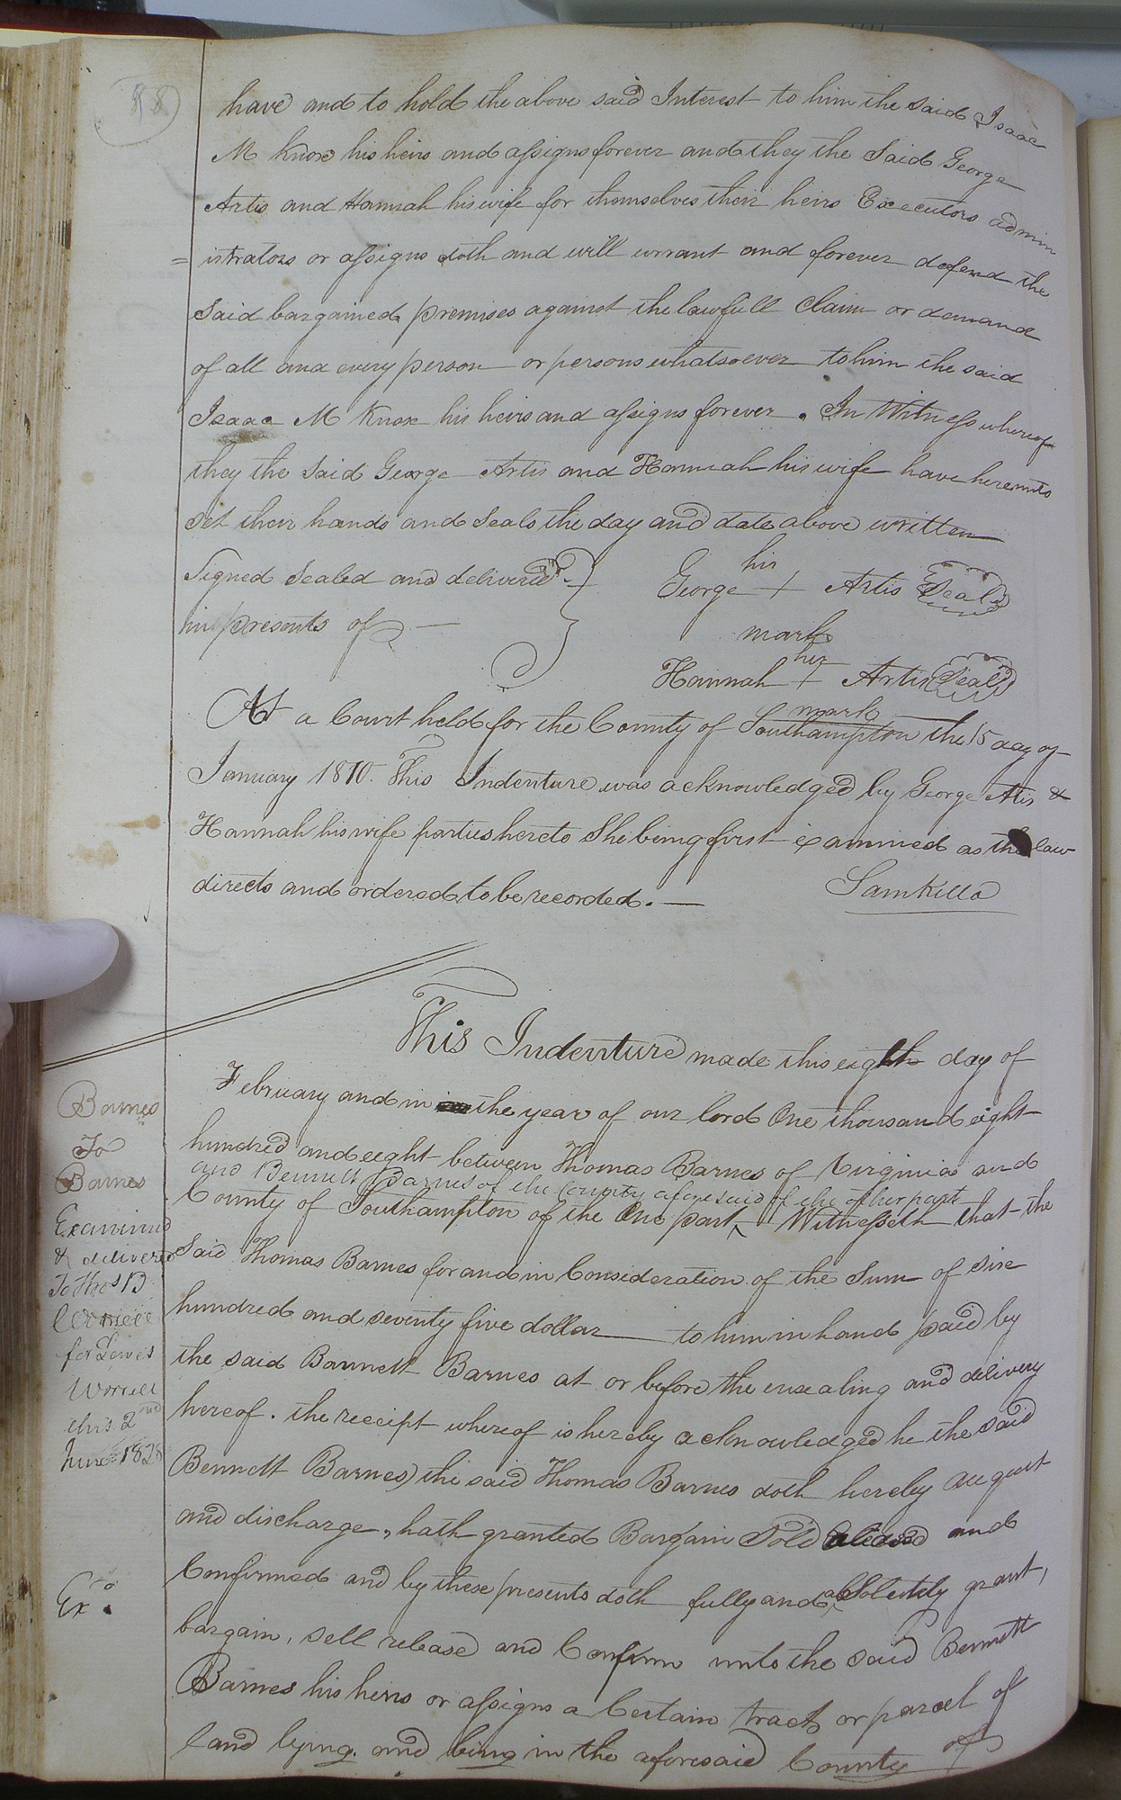 88
have and to hold the above said Interest to him the said Isaac
M Knox his heirs and assigns forever and they the Said George
Artis and Hannah his wife for themselves their heirs Executors admin
= istrators or assigns doth and will wrrant and forever defend the
Said bargained premises against the lawfull Claim or demand
of all and every person or persons whatsoever to him the said
Isaac M Knox his heirs and assigns forever. In Witness whereof
they the Said George Artis and Hannah his wife have hereunto
Set their hands and Seals the day and date above written
Signed Sealed and delivered
in presents of
his
George + Artis Seal
mark
her
Hannah + Artis Seal
mark
At a Court held for the County of Southampton the 15 day of
January 1810. This Indenture was acknowledged by George Atis &
Hannah his wife parties hereto She being first examined as the law
directs and ordered to be recorded.
Sam Kello
This Indenture made this eighth day of
February and in the year of our lord One thousand eight
hundred and eeght between Thomas Barnes of Virginia and
and Bennett Barnes of the County aforesaid of the other part
County of Southampton of the One part ^ Witnesseth that the
Said Thomas Barnes for and in Consideration of the Sum of Six
hundred and seventy five dollar to him in hand paid by
the said Bannett Barnes at or before the ensealing and delivery
hereof. the receipt whereof is hereby acknowledged he the said
Bennett Barnes) the said Thomas Barnes doth hereby acquit
and discharge, hath granted Bargain Sold and
Confirmed and by these presents doth fully and absolutely grant,
bargain, sell release and Confirm unto the said Bennett
Barnes his heirs or assigns a Certain tract or parcel of
land lying and being in the aforesaid County of
Barnes
To
Barnes
Examined
& delivered
To Thos B
Worrell
for Lewis
Worrell
this 2nd
June 1828
Exo.